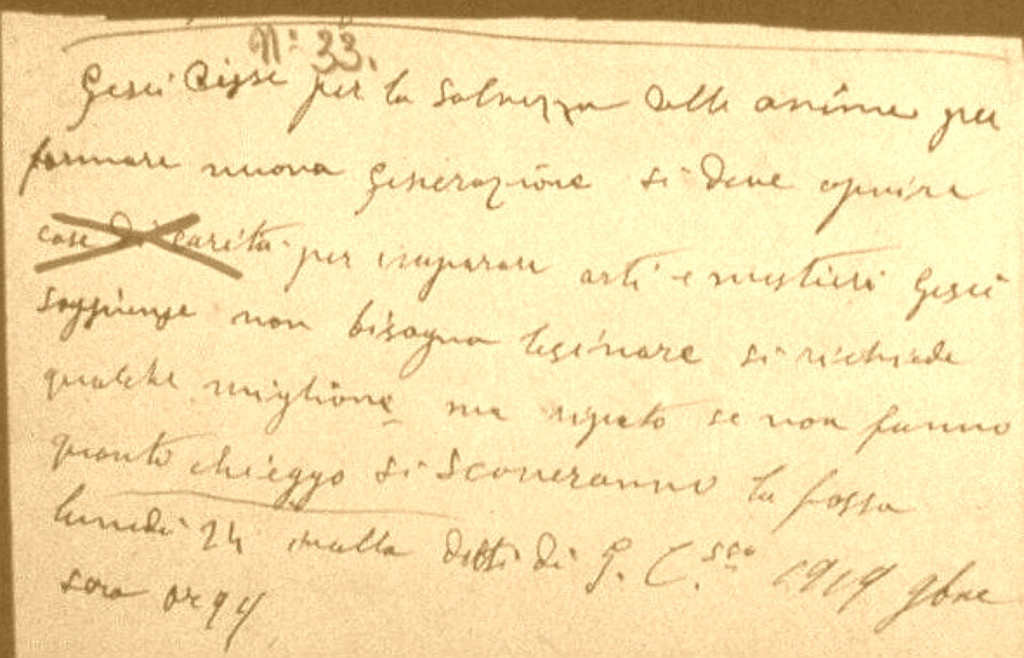 N: 33.
Gesù disse per la salvezza delle anime per
formare nuova generazione si deve aprire
case di carità per imparare arti e mestieri Gesù
soggiunge non bisogna lesinare si richiede
qualche miglione ma ripeto se non fanno
quanto chieggo si scaveranno la fossa
lunedì 24 nulla detti di G. C.sso 1919 9bre
sera or 9